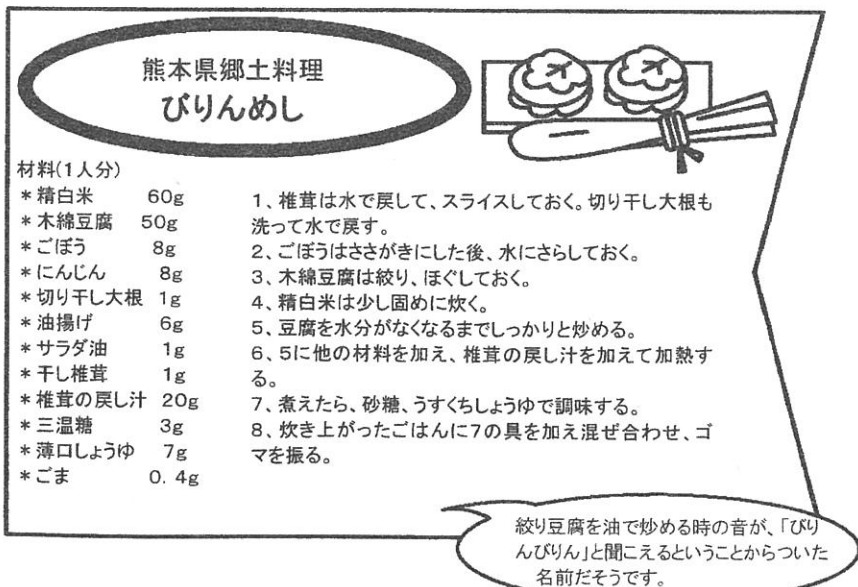 熊本県郷土料理
びりんめし
材料(1人分)
＊精白米 60g
＊木綿豆腐 50g
＊ごぼう 8g
＊にんじん 8g
＊切り干し大根 1g
＊油揚げ 6g
＊サラダ油 1g
＊干し椎茸 1g
＊椎茸の戻し汁 20g
＊三温糖 3g
＊薄口しょうゆ 7g
＊ごま 0.4g
1、椎茸は水で戻して、スライスしておく。切り干し大根も
洗って水で戻す。
2、ごぼうはささがきにした後、水にさらしておく。
3、木綿豆腐は絞り、ほぐしておく。
4、精白米は少し固めに炊く。
5、豆腐を水分がなくなるまでしっかりと炒める。
6、5に他の材料を加え、椎茸の戻し汁を加えて加熱す
る。
7、煮えたら、砂糖、うすくちしょうゆで調味する。
8、炊き上がったごはんに7の具を加え混ぜ合わせ、ゴ
マを振る。
絞り豆腐を油で炒める時の音が、「びり
んびりん」と聞こえるということからついた
名前だそうです。